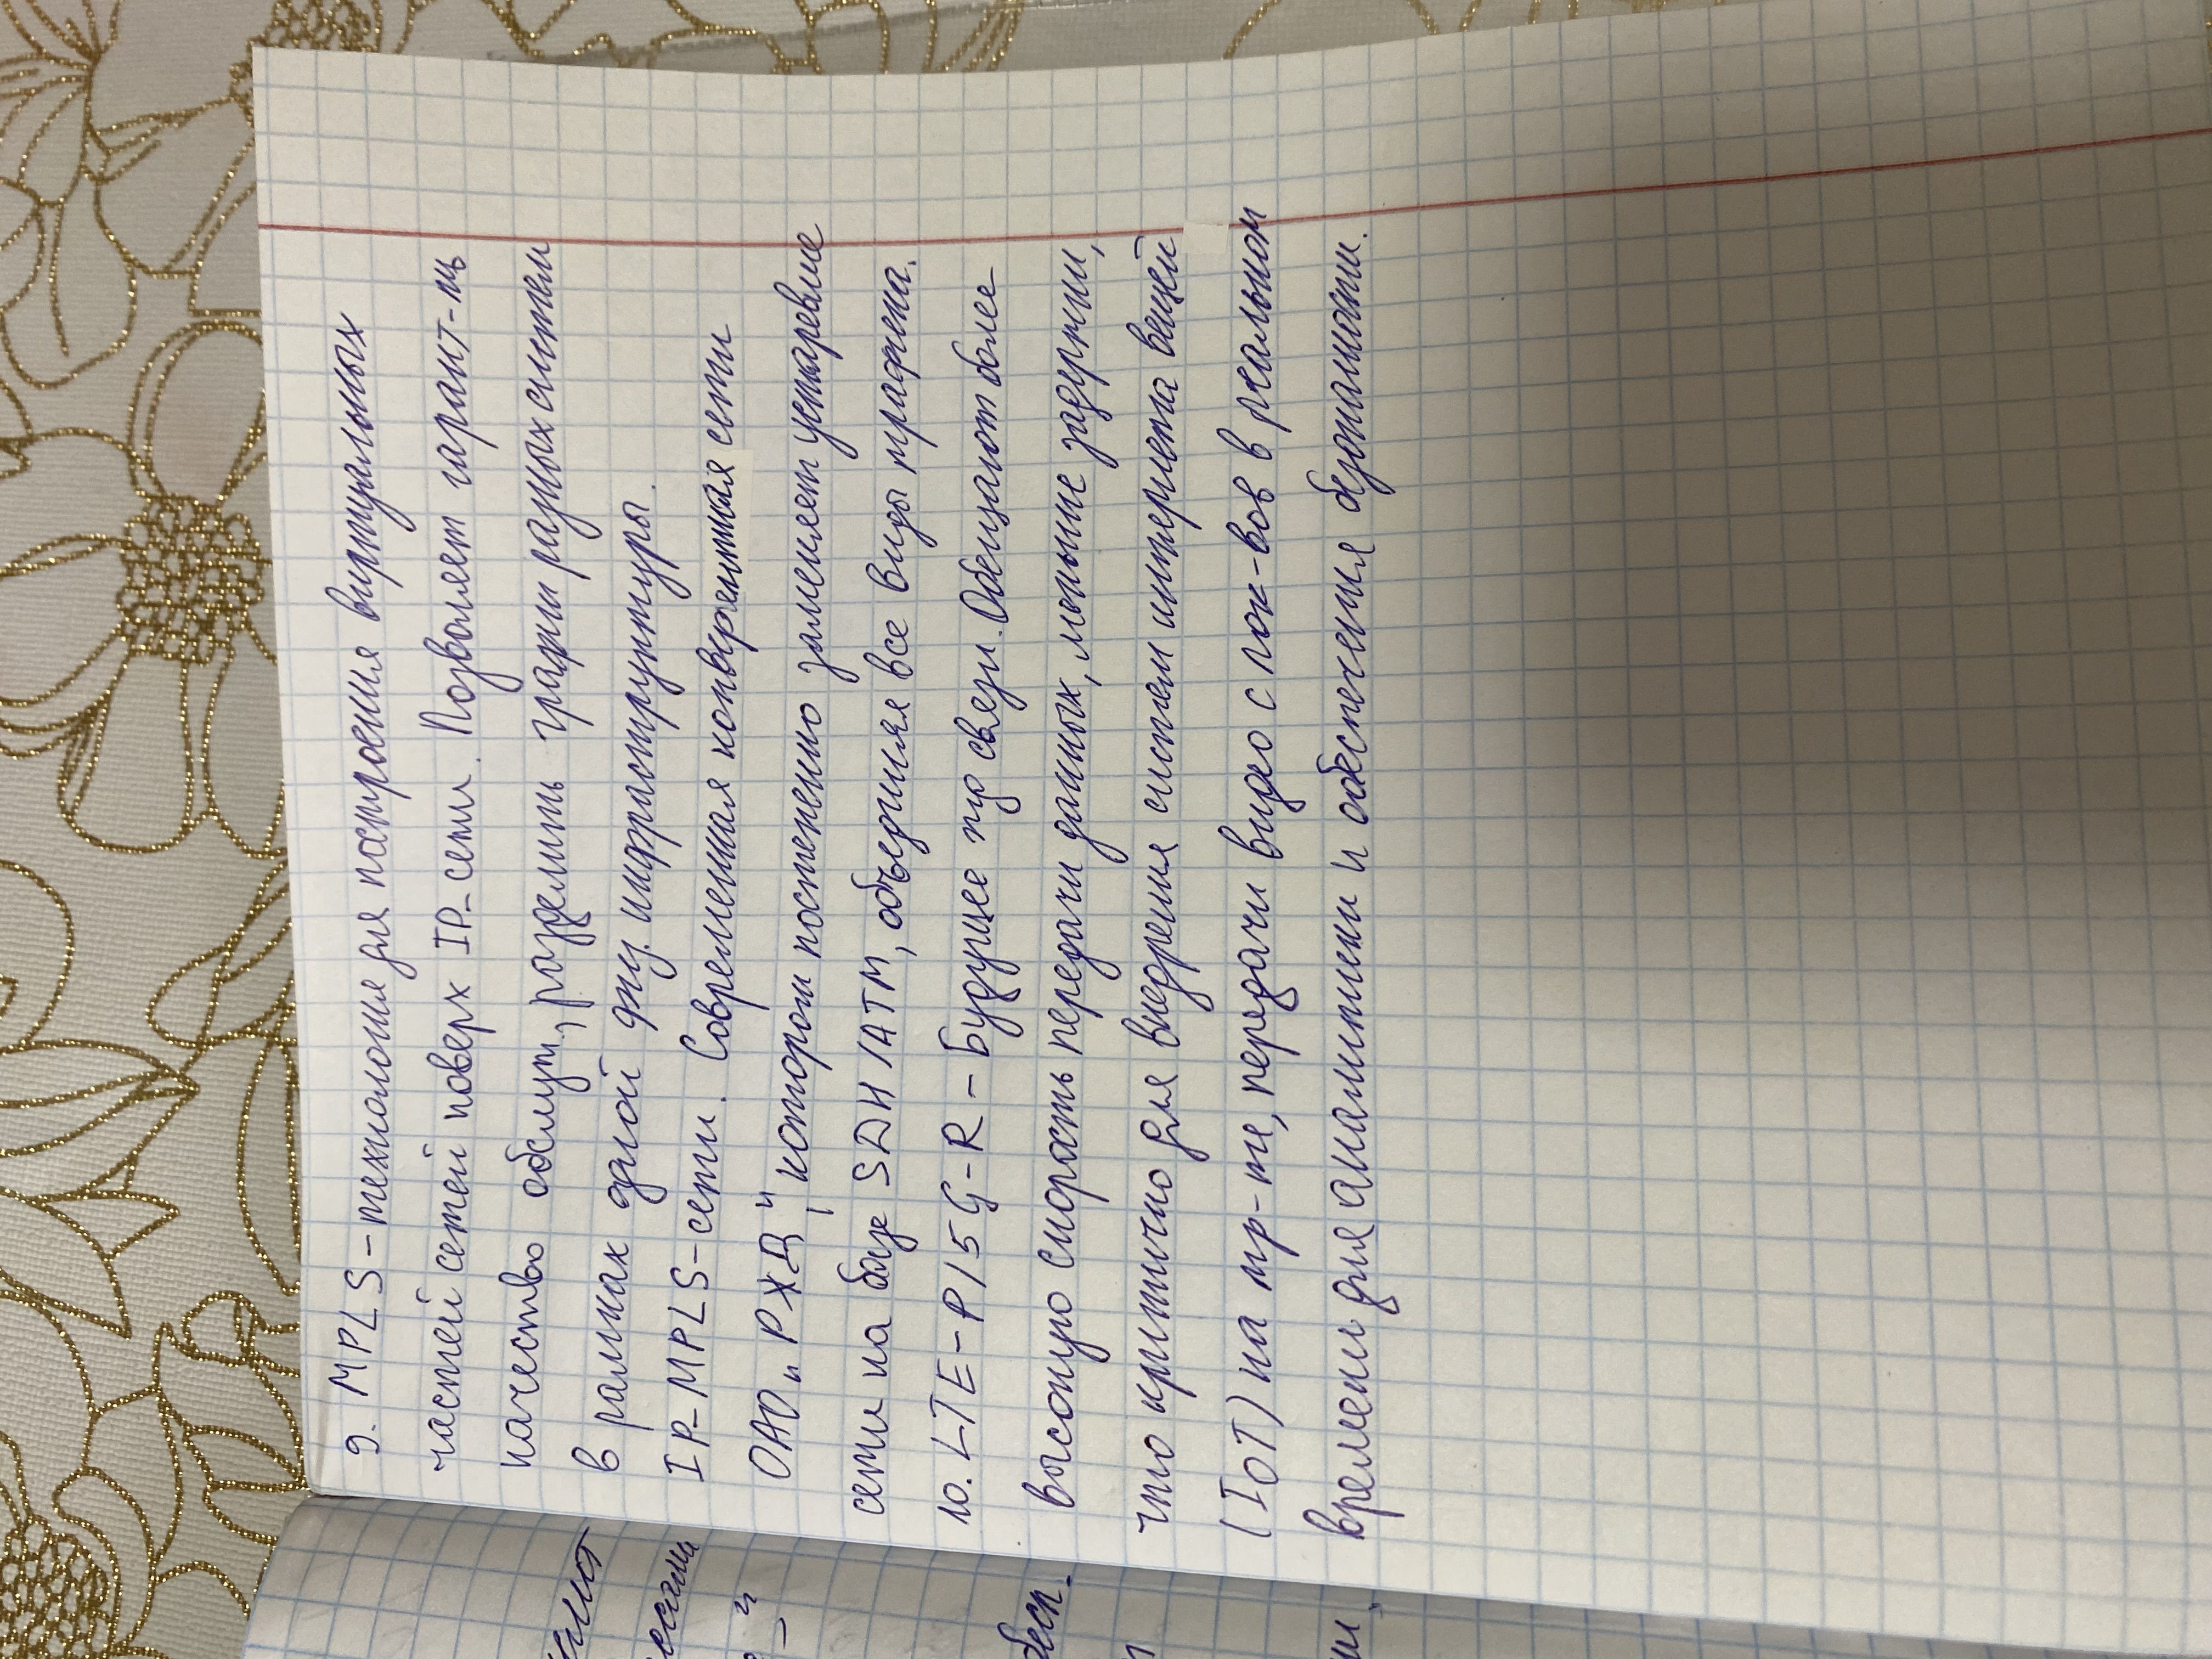 9. MPLS-технология для построения виртуальных
частей сетей поверх IP-сети. Позволяет гарант-ть
качество обслуж., разделить графки разных систем
в рамках одной физ. инфраструктуры.
IP-MPLS-сети. Современная конвергентная сети
ОАО „РЖД", которой постепенно заменяет устаревшие
сети на базе SDH/ATM, объединяя все виды трафика.
10. LTE-P/5G-R - Будущее пр связи. Обещают более
высокую скорость передачи данных, меньшие задержки,
что критично для внедрения систем интернета вещей
(IoT) на тр-те, передачи видео с лок-вов в реальном
времени для аналитики и обеспечения безопасности.